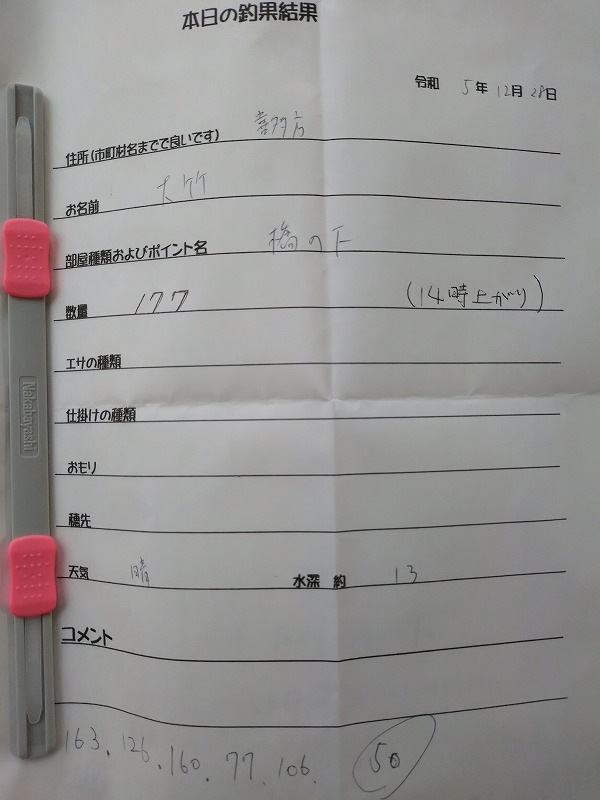 本日の釣果結果
令和 5年 12月 28日
住所(市町村名までで良いです) 喜多方
お名前 大竹
部屋種類およびポイント名 橋の下
数量 177 (14時上がり)
エサの種類
仕掛けの種類
おもり
穂先
天気 晴 水深 約 13
コメント
163. 126. 160. 77. 106. 50
Nakabayashi